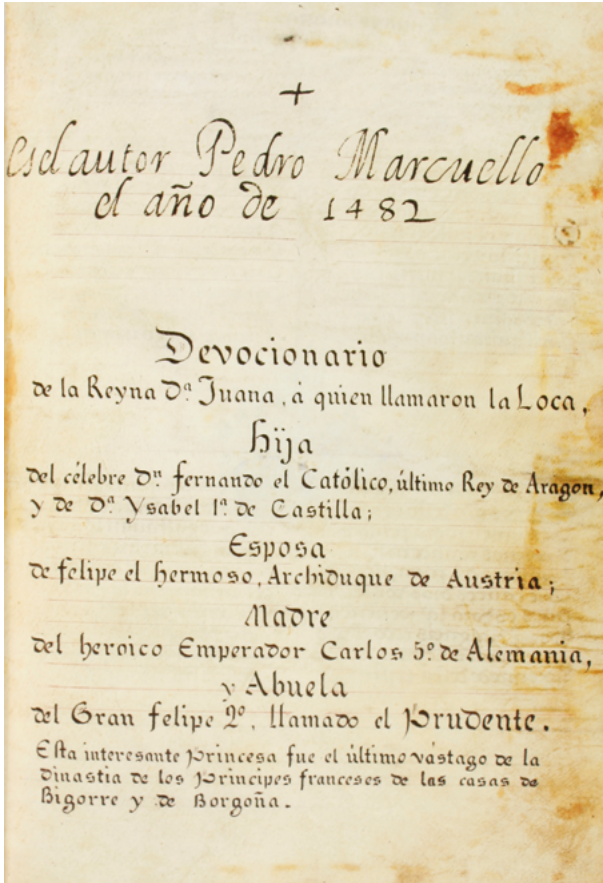 +
Es el autor Pedro Marcuello
el año de 1482
Devocionario
de la Reyna Dª. Juana, á quien llamaron la Loca,
hija
del célebre Dⁿ. fernando el Católico, último Rey de Aragon,
y de Dª. Ysabel 1ª. de Castilla;
Esposa
de felipe el hermoso, Archiduque de Austria;
Madre
del heroico Emperador Carlos 5º. de Alemania,
y Abuela
del Gran felipe 2º. llamado el Prudente.
Esta interesante Princesa fue el último vástago de la
Dinastia de los Principes franceses de las casas de
Bigorre y de Borgoña.